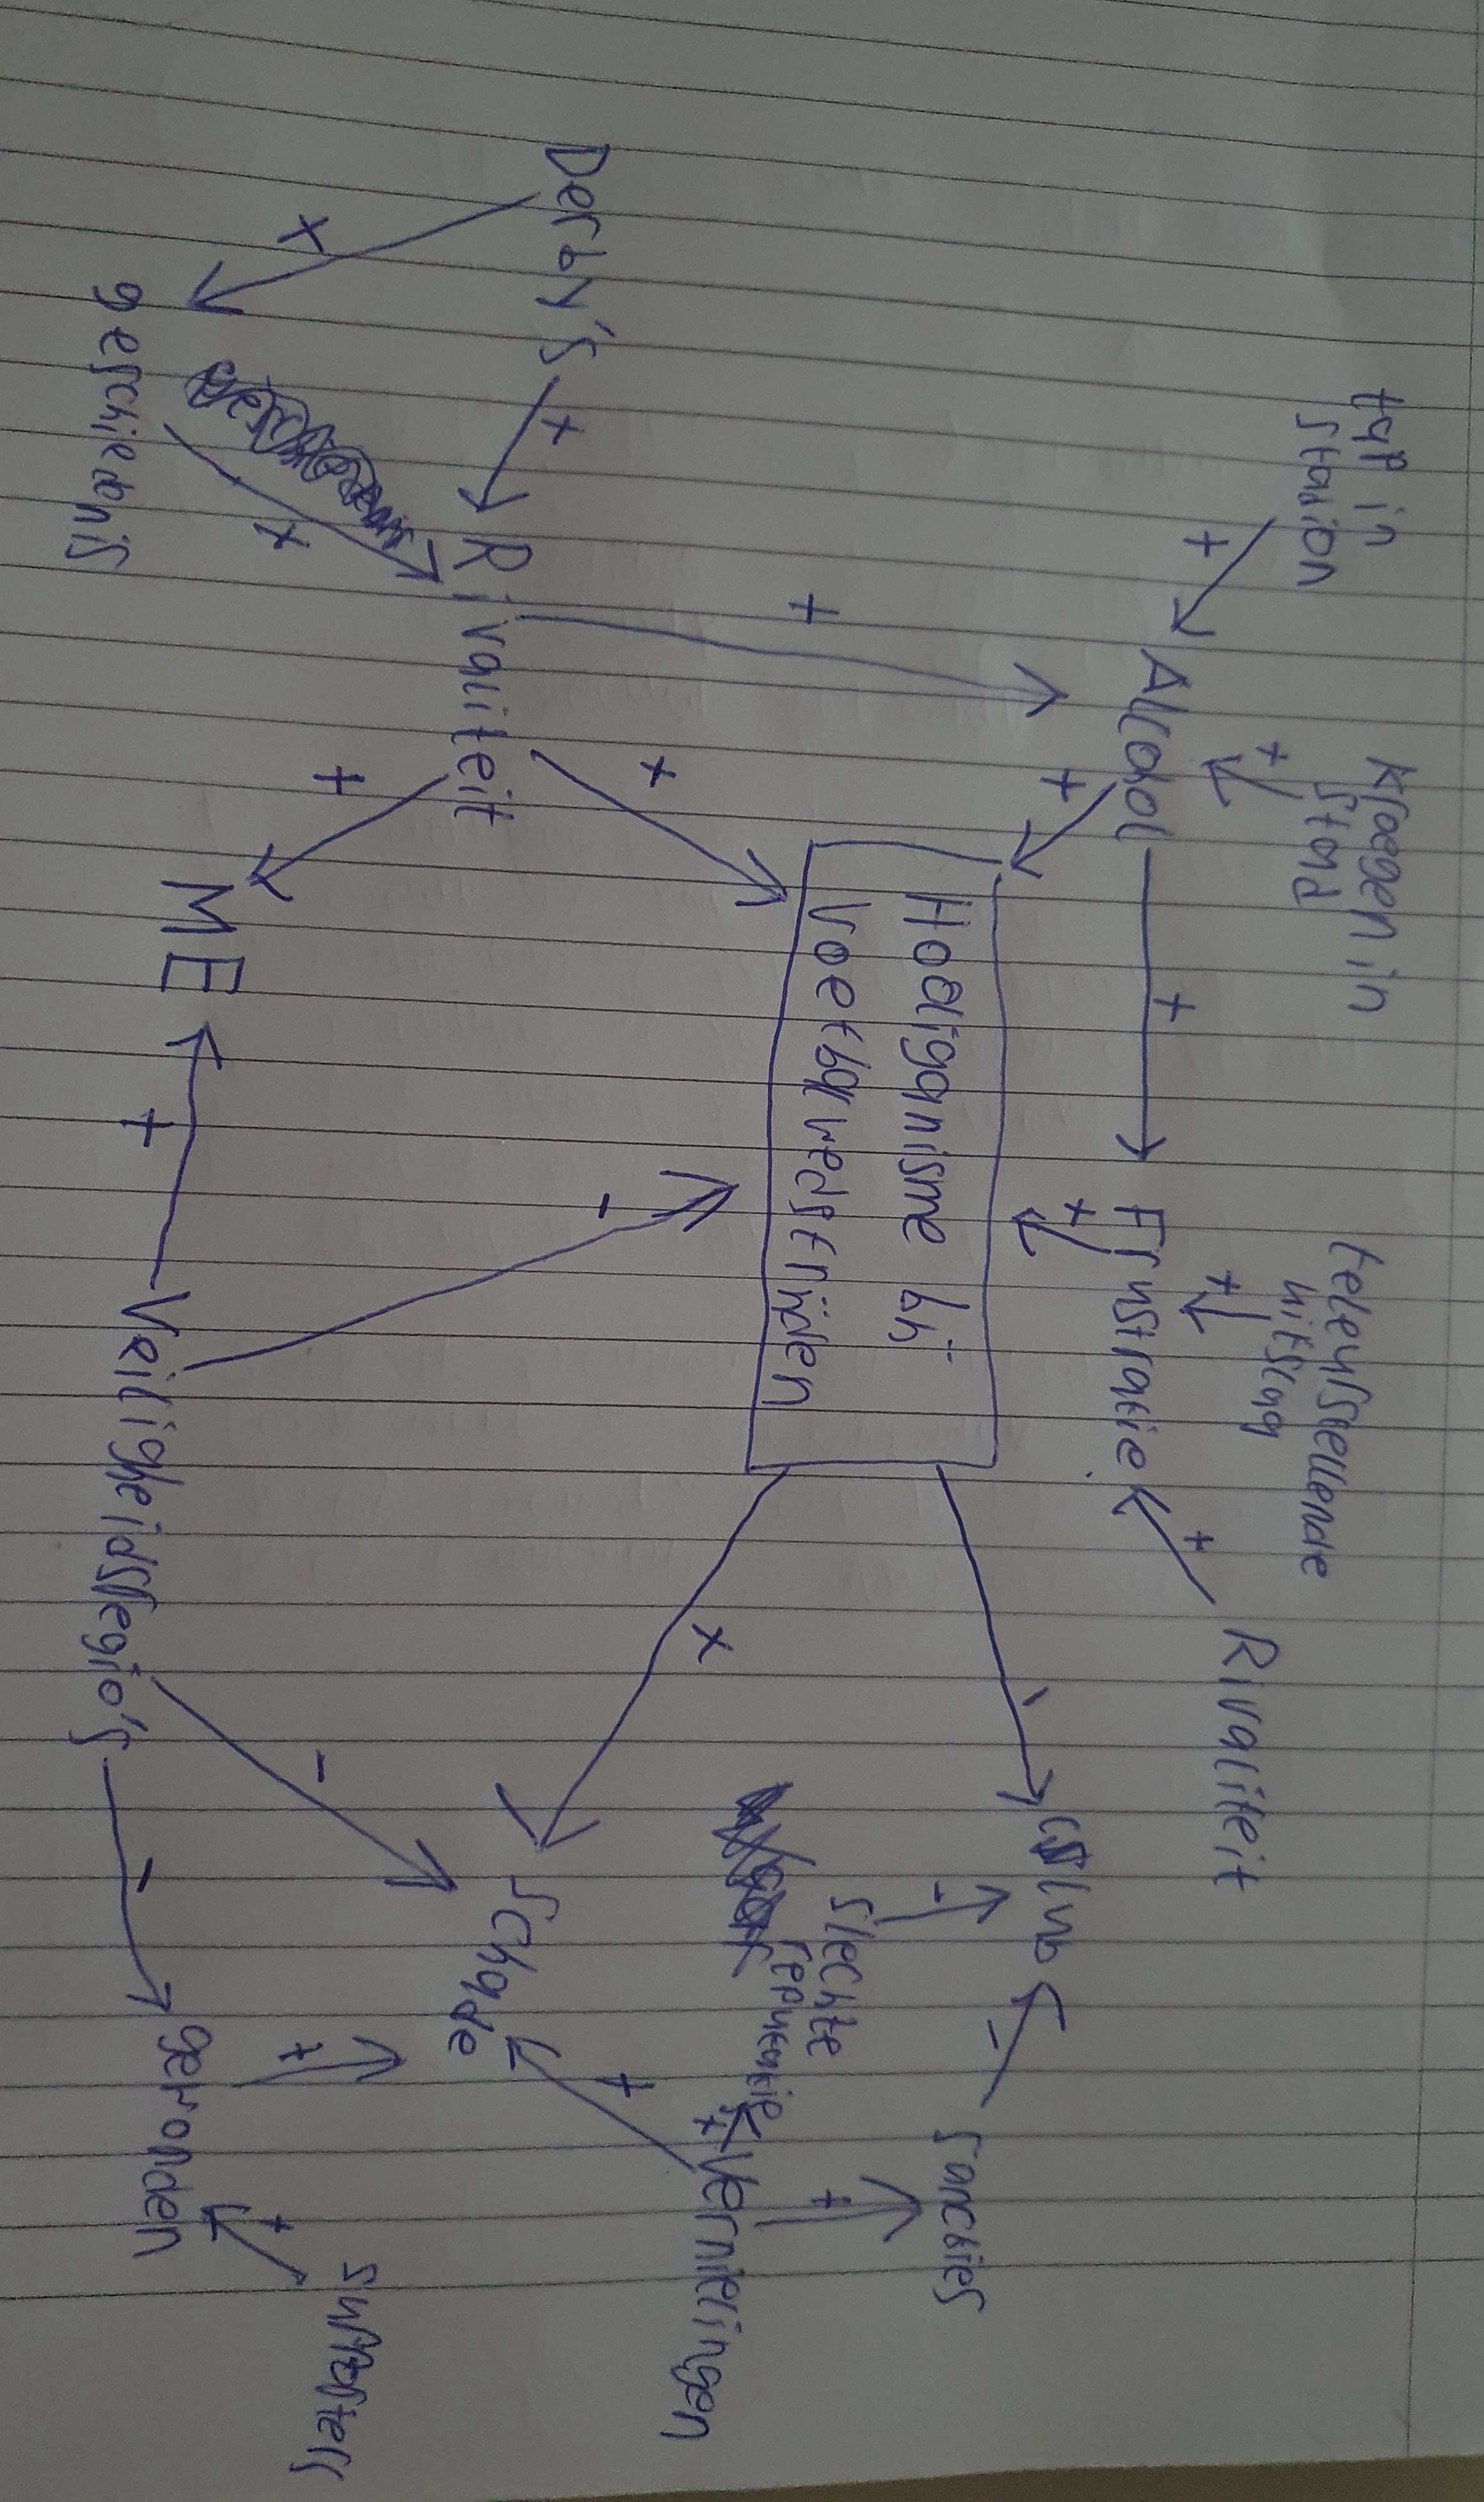 tap in
stadion
kroegen in
stad
teleurstellende
uitslag
Rivaliteit
+
+
+
+
Alcohol
+
Frustratie
+
+
Hooliganisme bij
Voetbalwedstrijden
-
Club
-
Sancties
-
slechte
reputatie
+
+
Vernielingen
+
+
+
+
Derby's
+
Rivaliteit
+
-
Schade
+
geschiedenis
+
+
ME
+
Veiligheidsregio's
-
-
gewonden
+
+
supporters